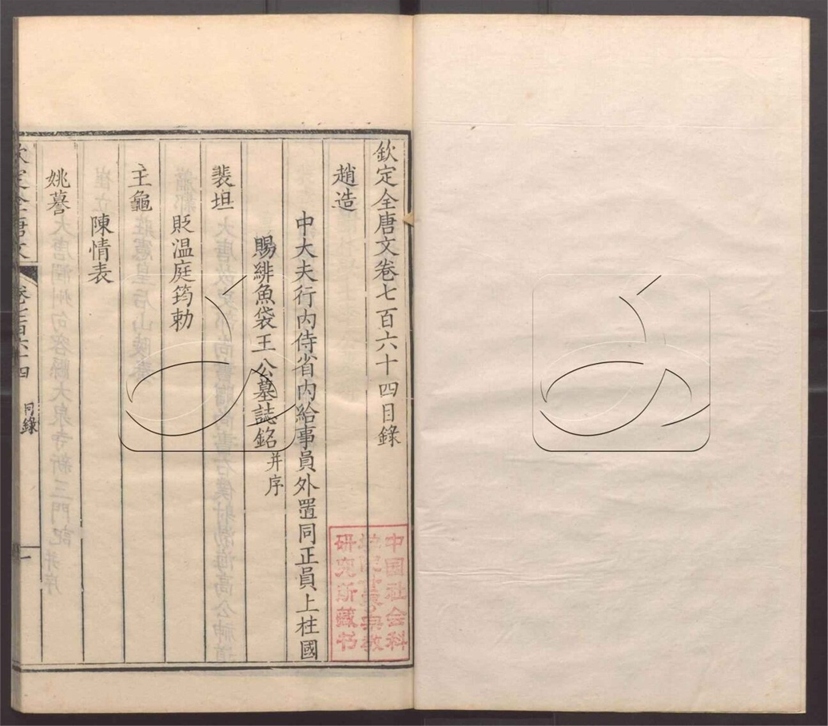 欽定全唐文卷七百六十四目錄
趙造
中大夫行內侍省內給事員外置同正員上柱國
賜緋魚袋王公墓誌銘并序
裴坦
貶溫庭筠勅
王龜
陳情表
姚謩
欽定全唐文
卷七百六十四
目錄
一
中國社会科
研究所藏书